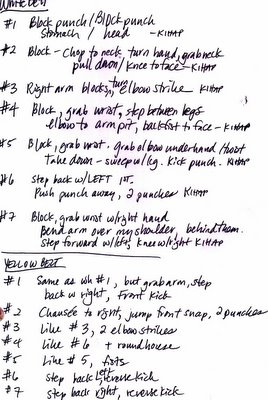 WHITE BELT
#1 Block punch/Block punch
stomach / head - KIHAP
#2 Block - Chop to neck, turn hand, grab neck
pull down/knee to face - KIHAP
#3 Right arm block, turn, elbow strike KIHAP
#4 Block, grab wrist, step between legs
elbow to arm pit, backfist to face - KIHAP
#5 Block, grab wrist, grab elbow underhand/twist
take down - sweep w/leg. Kick punch. KIHAP
#6 Step back w/LEFT 1st.
Push punch away, 2 punches KIHAP
#7 Block, grab wrist w/right hand
Bend arm over my shoulder, behind them.
Step forward w/left, knee w/right KIHAP
YELLOW BELT
#1 Same as wh #1, but grab arm, step
back w right, front kick
#2 Chassée to right, jump front snap, 2 punches
#3 Like #3, 2 elbow strikes
#4 Like #6 + roundhouse
#5 Like #5, fists
#6 step back left reverse kick
#7 step back right, reverse kick